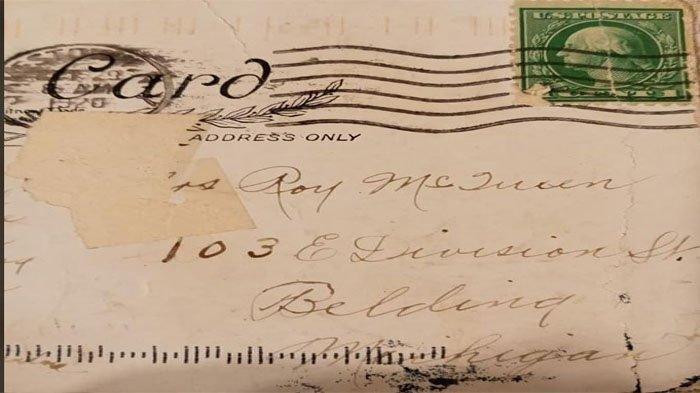 Card
1920
U.S. POSTAGE
ADDRESS ONLY
rs Roy McQueen
103 E Division St.
Belding
Michigan